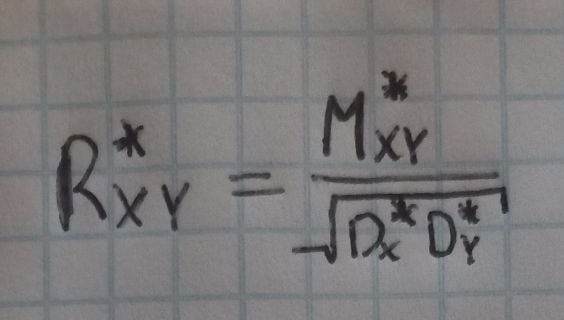 R*_XY = M*_XY / √(D*_X D*_Y)